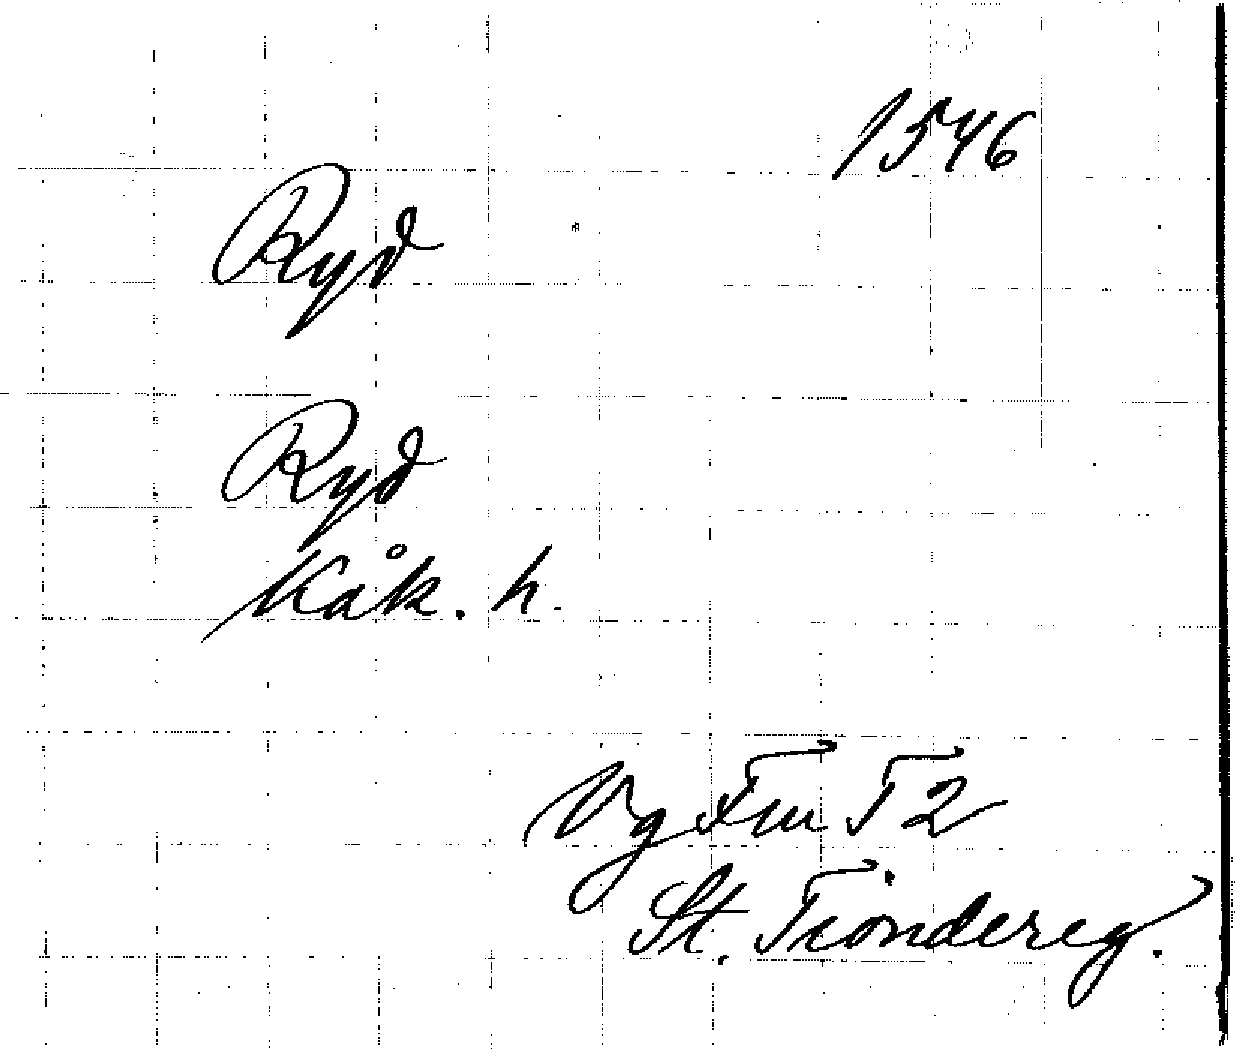 1546
Ryd
Ryd
Kåk. h.
Vg Fm T2
St. Tiondereg.